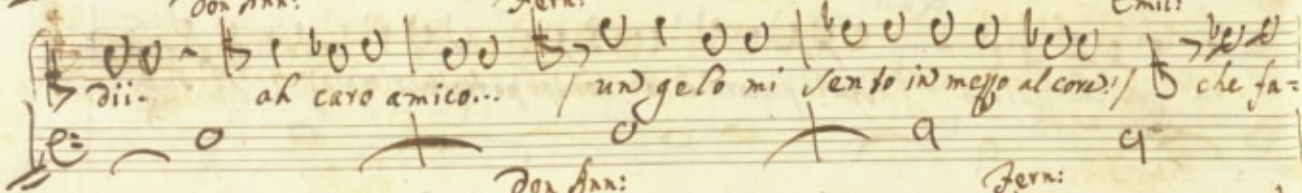 Don Ann: Fern: Emil:
dii- ah caro amico... / un gelo mi sento in mezzo al core!/ che fa=
Don Ann: Fern: